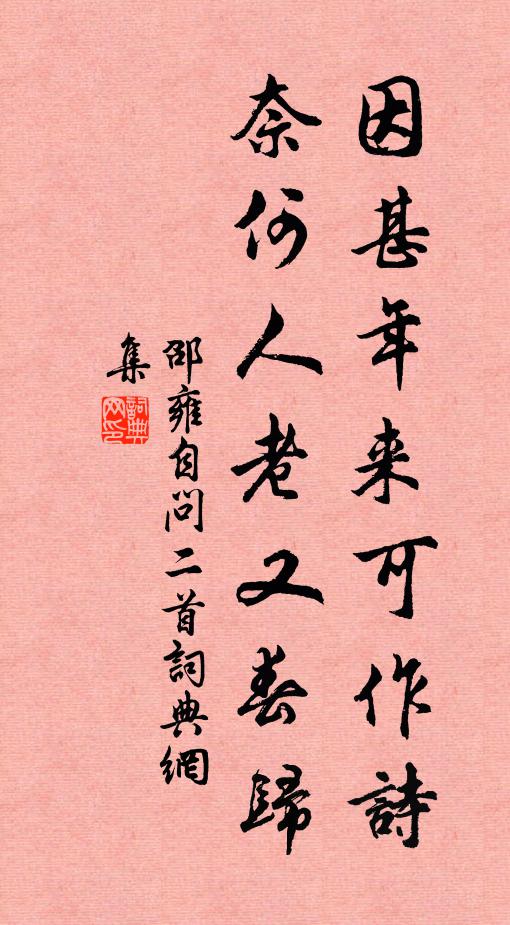 因甚年来可作詩
奈何人老又春歸
邵雍自问二首詞典網
集
詞典网印